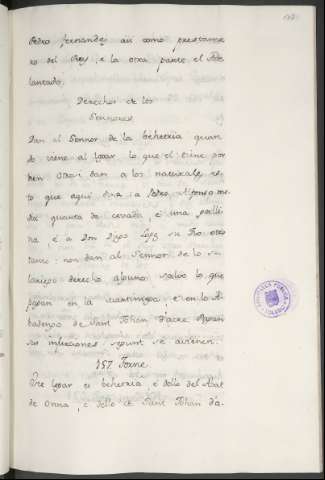 Pedro fernandez asi como prestame
ro del Rey, e la otra parte el Ade
lantado.
Derechos de los
Sennores
Dan al Sennor de la behetria quan
do viene al logar lo que el tiene por
bien otrosi dan a los naturales
to que aqui a Pedro Alfonso me
dia quarta de cevada, e una
na e a Don Diego Lopez su tio otro
tanto: non dan al Sennor de lo so
lariego derecho alguno salvo lo que
pagan en la martiniega, e en lo A
badengo de Sant Johan d'acre
sus infurciones segunt se avienen.
157. Torme
Este logar es behetria, e dello del Abat
de Onna, e dello de Sant Johan d'a-